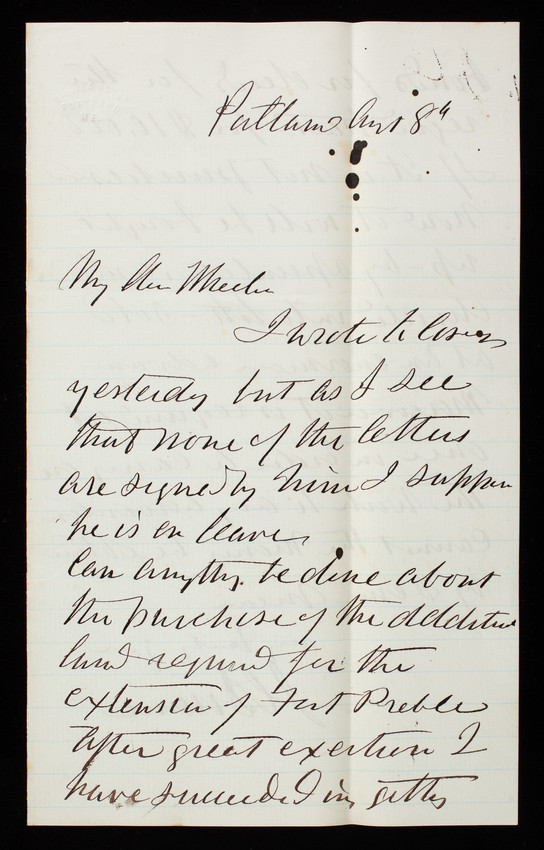 Portland Aug 8th
My Dear Wheeler
I wrote to Casey
yesterday but as I see
that none of the letters
are signed by him I suppose
he is on leave,
Can anything be done about
the purchase of the additional
land required for the
extension of Fort Preble
After great exertion I
have succeeded in getting